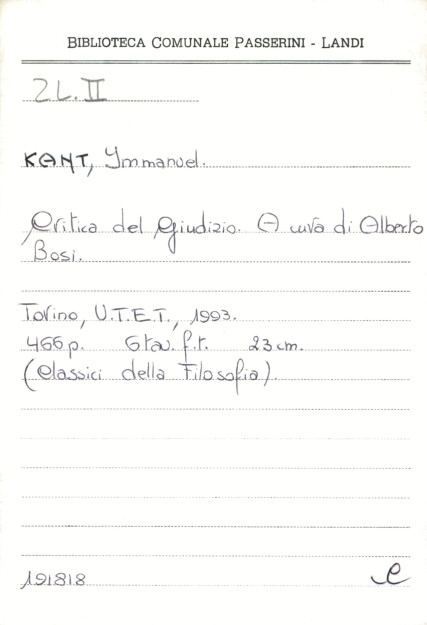 BIBLIOTECA COMUNALE PASSERINI - LANDI
2L.II
KANT, Immanuel.
Critica del Giudizio. A cura di Alberto
Bosi.
Torino, U.T.E.T., 1993.
466 p. 6 tav. f.t. 23 cm.
(Classici della Filosofia).
191818
e